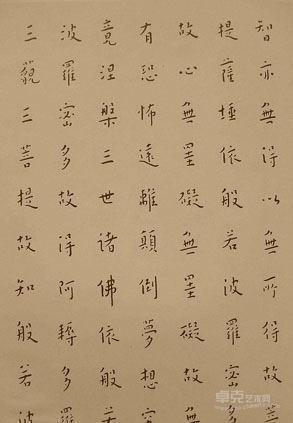 智亦無得以無所得故菩
提薩埵依般若波羅密多
故心無罣礙無罣礙故無
有恐怖遠離顛倒夢想究
竟涅槃三世諸佛依般若
波羅密多故得阿耨多羅
三藐三菩提故知般若波
卓克艺术网